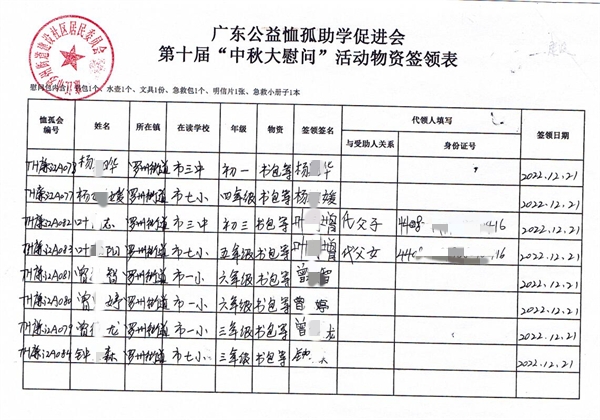 广东公益恤孤助学促进会
第十届“中秋大慰问”活动物资签领表
街道建设社区居民委员会
慰问包内含：书包1个、水壶1个、文具1份、急救包1个、明信片1张、急救小册子1本
恤孤会编号 姓名 所在镇 在读学校 年级 物资 签领签名 代领人填写 签领日期
与受助人关系 身份证号
杨 华 罗州街道 市三中 初一 书包等 杨 华 2022.12.21
TH廉江A077 杨 媛 罗州街道 市七小 四年级 书包等 杨 媛 2022.12.21
TH廉江A082 叶 志 罗州街道 市三中 初三 书包等 叶 增 代父子 4408 416 2022.12.21
TH廉江A083 叶 罗州街道 市七小 五年级 书包等 叶 增 代父女 440 16 2022.12.21
TH廉江A081 曾 智 罗州街道 市一小 六年级 书包等 曾 2022.12.21
TH廉江A080 曾 婷 罗州街道 市一小 六年级 书包等 曾 婷 2022.12.21
TH廉江A079 曾 龙 罗州街道 市一小 三年级 书包等 曾 龙 2022.12.21
TH廉江A084 钟 森 罗州街道 市七小 三年级 书包等 钟 2022.12.21